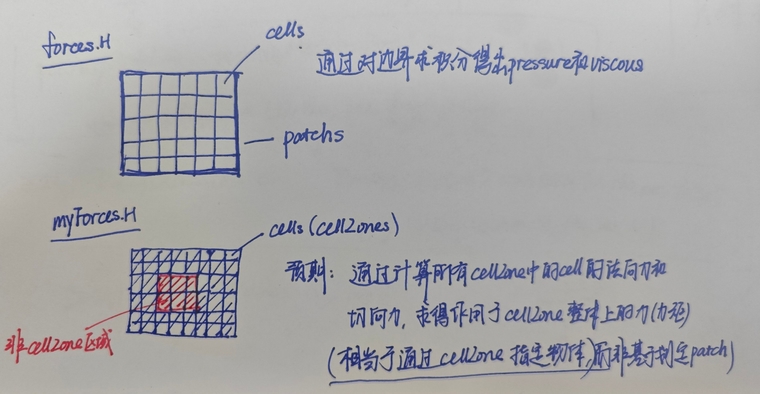 forces.H
cells
通过对边界求积分得出pressure和viscous
patchs
myForces.H
cells(cellZones)
预期: 通过计算所有cellZone中的cell的法向力和
切向力, 求得作用于cellZone整体上的力(力矩)
非cellZone区域
(相当于通过cellZone指定物体,而非基于制定patch)